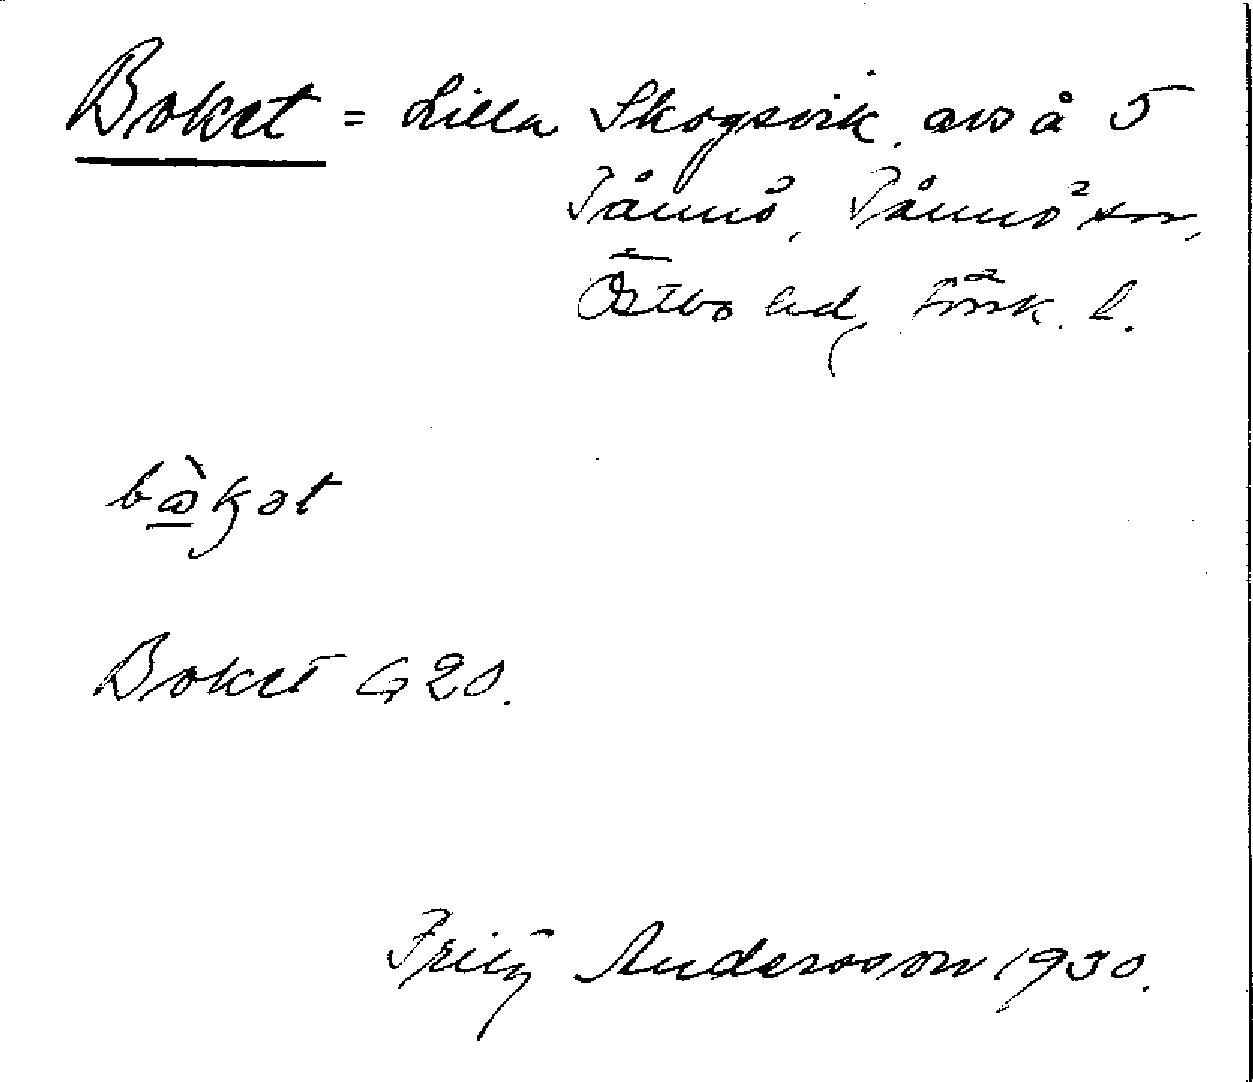 Boket = Lilla Skogsvik, avs å 5
Tånnö, Tånnö sn,
Östbo hd, Jönk. l.
Boket G 20.
Fritz Andersson 1930.